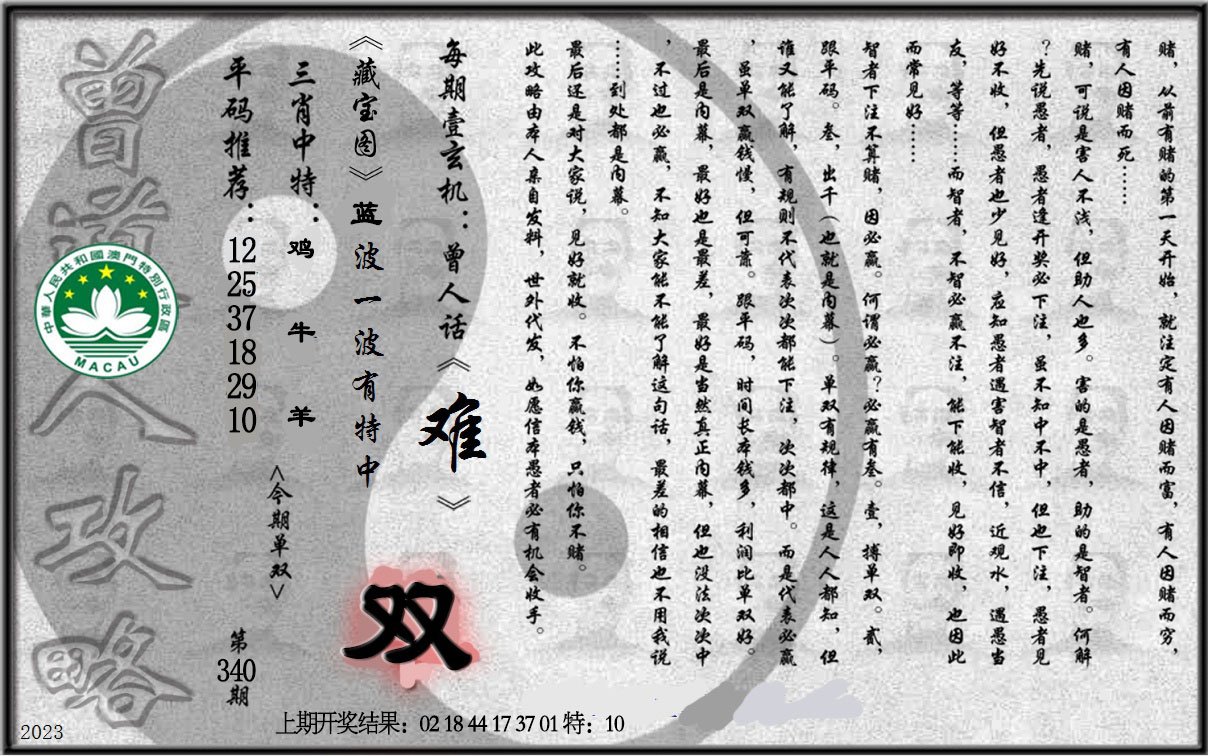 赌，从前有赌的第一天开始，就注定有人因赌而富，有人因赌而穷，
有人因赌而死……
赌，可说是害人不浅，但助人也多。害的是愚者，助的是智者。何解
？先说愚者，愚者逢开奖必下注，虽不知中不中，但也下注，愚者见
好不收，但愚者也少见好，应知愚者遇害智者不信，近观水，遇愚当
友，等等……而智者，不智必赢不注，能下能收，见好即收，也因此
而常见好……
智者下注不算赌，因必赢。何谓必赢？必赢有叁。壹，搏单双。贰，
跟平码。叁，出千（也就是内幕）。单双有规律，这是人人都知，但
谁又能了解，有规则不代表次次都能下注，次次都中。而是代表必赢
，虽单双赢钱慢，但可靠。跟平码，时间长本钱多，利润比单双好。
最后是内幕，最好也是最差，最好是当然真正内幕，但也没法次次中
，不过也必赢，不知大家能不能了解这句话，最差的相信也不用我说
……到处都是内幕。
最后还是对大家说，见好就收。不怕你赢钱，只怕你不赌。
此攻略由本人亲自发料，世外代发，如愿信本愚者必有机会收手。
每期壹玄机：曾人话《难》
《藏宝图》蓝波一波有特中
双
三肖中特：鸡 牛 羊
<今期单双>
平码推荐：12 25 37 18 29 10
第340期
曾道人攻略
中華人民共和國澳門特別行政區
MACAU
上期开奖结果：02 18 44 17 37 01 特：10
2023